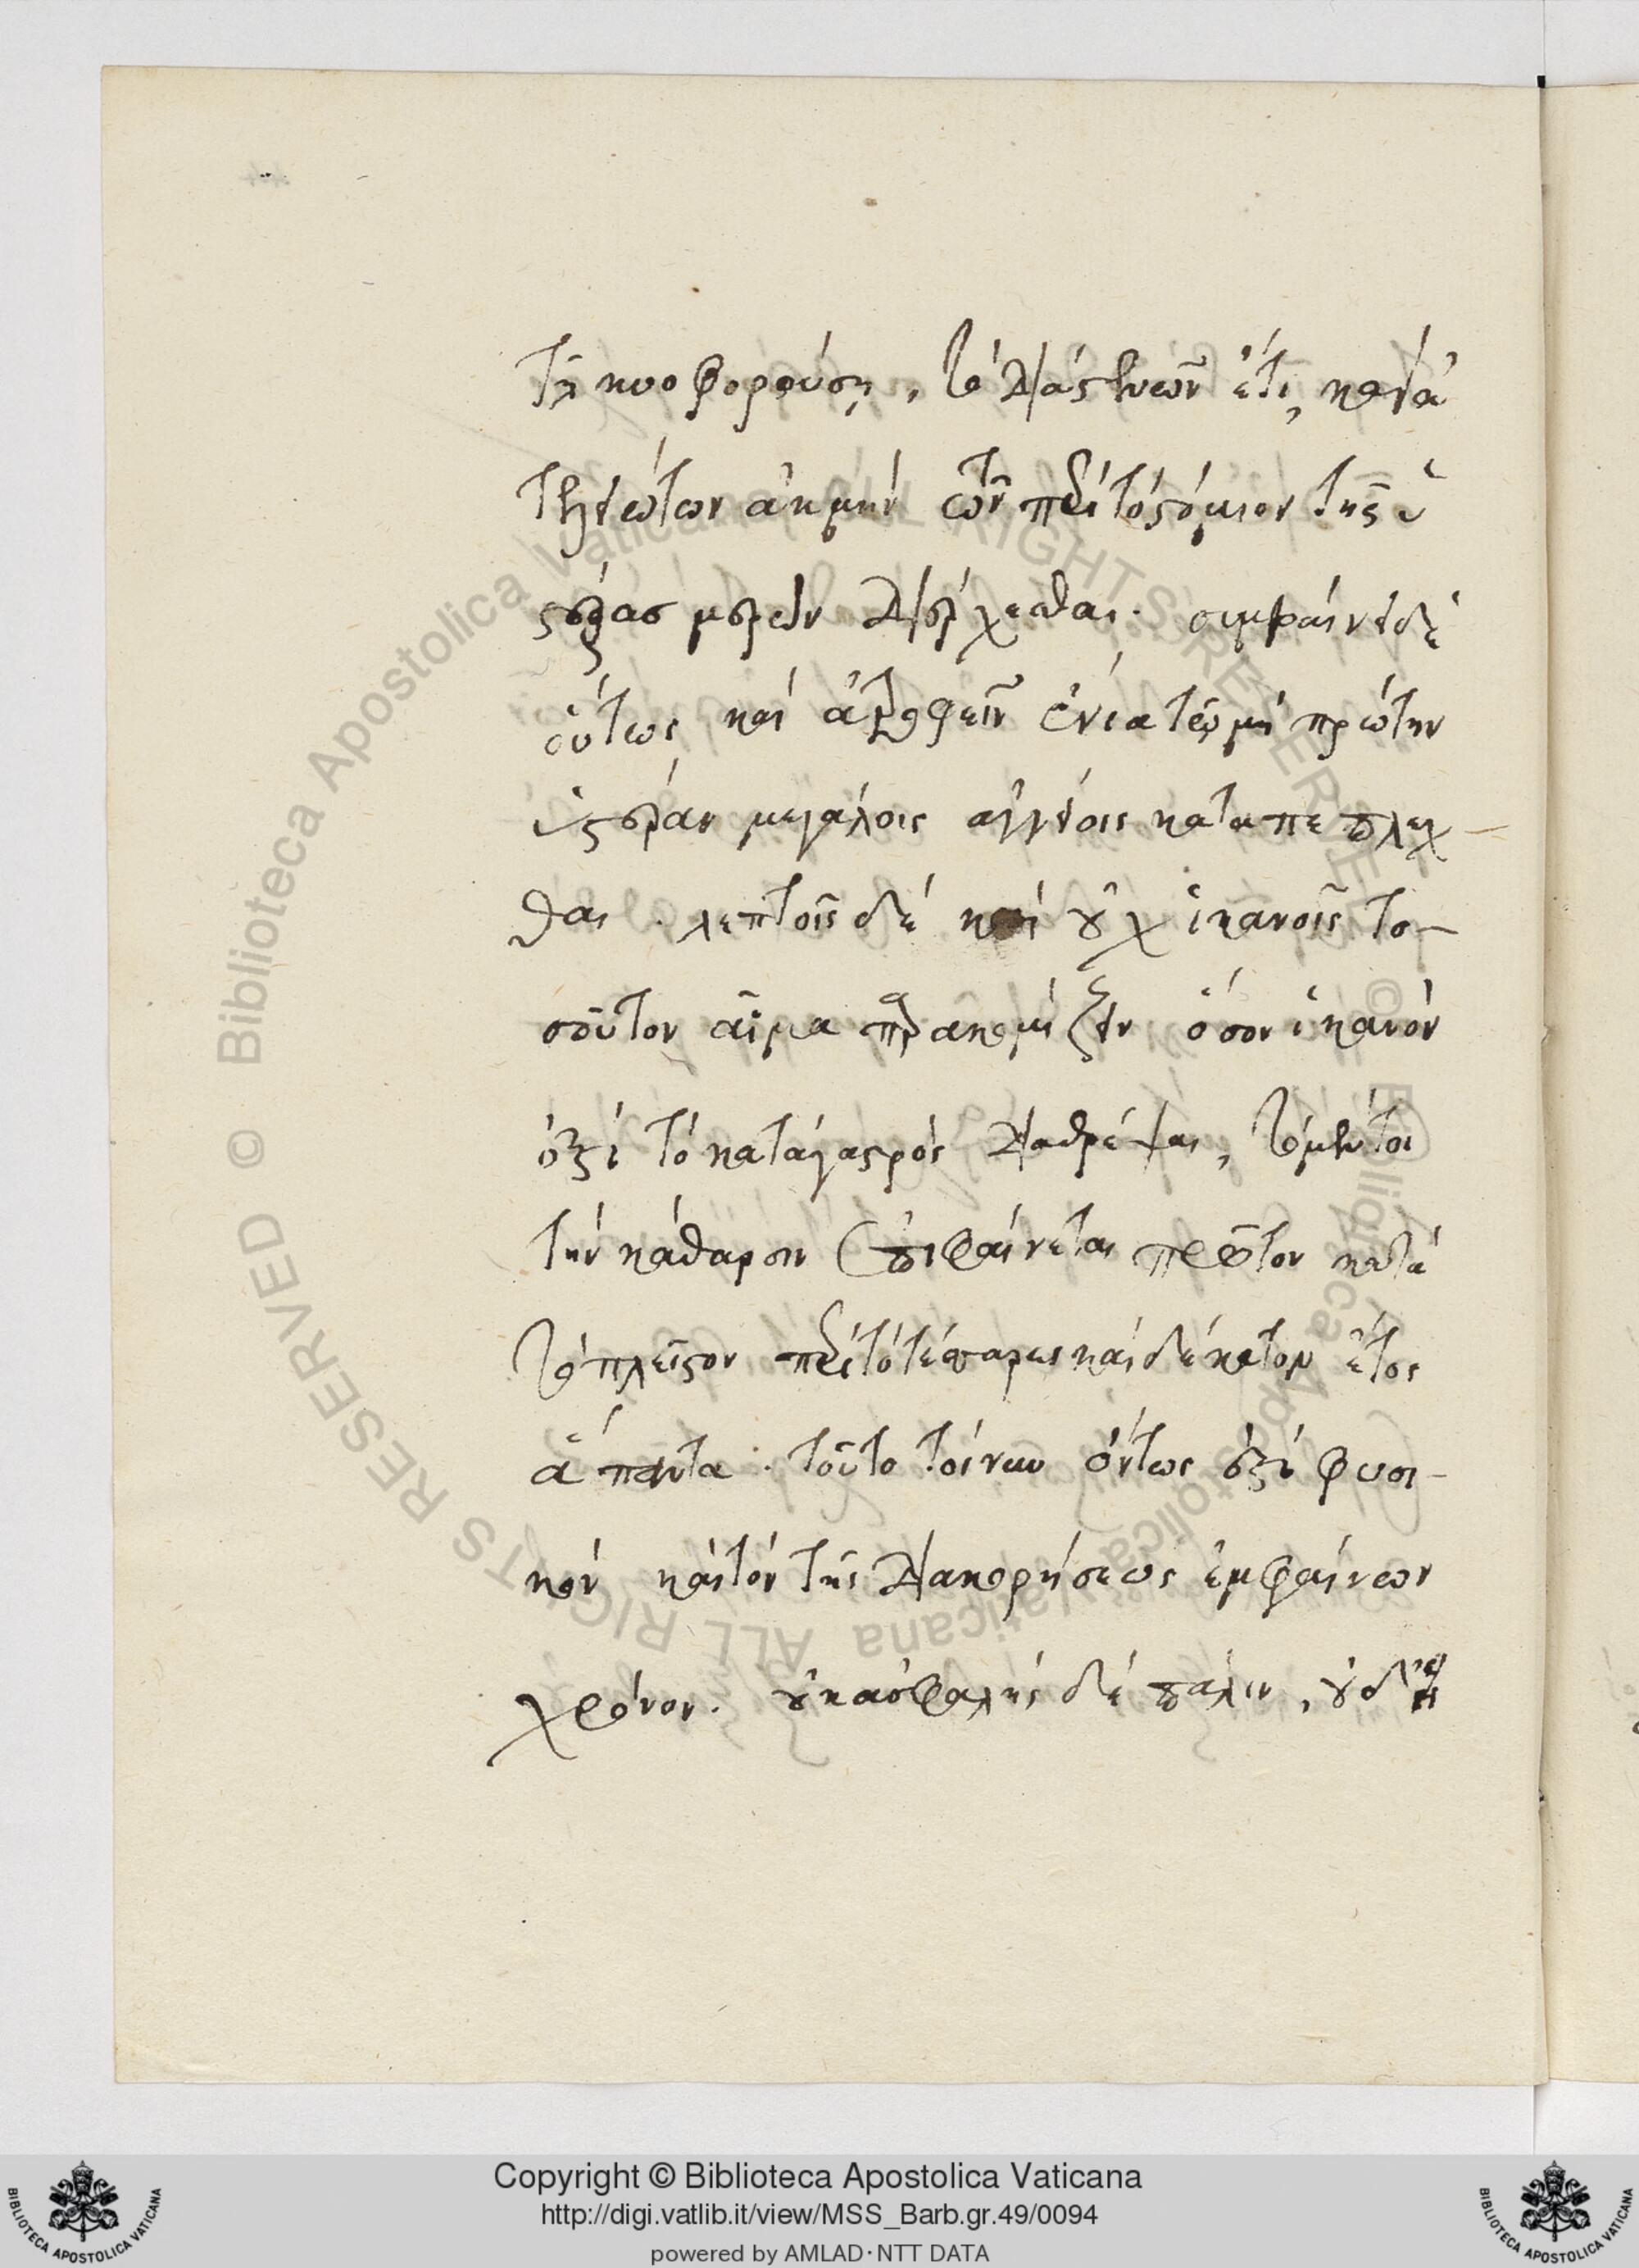 τῇ κυοφορούσῃ, τὸ διάστημα ἔτι, κατὰ
τὴν τούτων ἀκμὴν τῶν περὶ τὸ στόμιον τῆς ὑ
στέρας μερῶν διέρχεσθαι. συμβαίνει δὲ
οὕτως καὶ ἀτροφεῖν ἔνια τῷ μὴ πρώτην
ὑστέραν μεγάλοις ἀγγείοις καταπεπλέχ-
θαι. λεπτοῖς δὲ καὶ οὐχ ἱκανοῖς το-
σοῦτον αἷμα παρακομίζειν ὅσον ἱκανὸν
ἐστὶ τὸ κατὰ γαστρὸς διαθρέψαι, τὸ μέντοι
τὴν κάθαρσιν ἐπιφαίνεται πρῶτον κατὰ
τὸ πλεῖστον περὶ τὸ τέσσαρες καὶ δέκατον ἔτος
ἅπαντα. τοῦτο τοίνυν ὄντως ἐστὶ φυσι-
κὸν καὶ τὸν τῆς διακορήσεως ἐμφαίνων
χρόνον. οὐκ ἀσφαλὴς δὲ πάλιν,
Copyright © Biblioteca Apostolica Vaticana
http://digi.vatlib.it/view/MSS_Barb.gr.49/0094
powered by AMLAD·NTT DATA
BIBLIOTECA APOSTOLICA VATICANA
BIBLIOTECA APOSTOLICA VATICANA
© Biblioteca Apostolica Vaticana ALL RIGHTS RESERVED
© Biblioteca Apostolica Vaticana ALL RIGHTS RESERVED